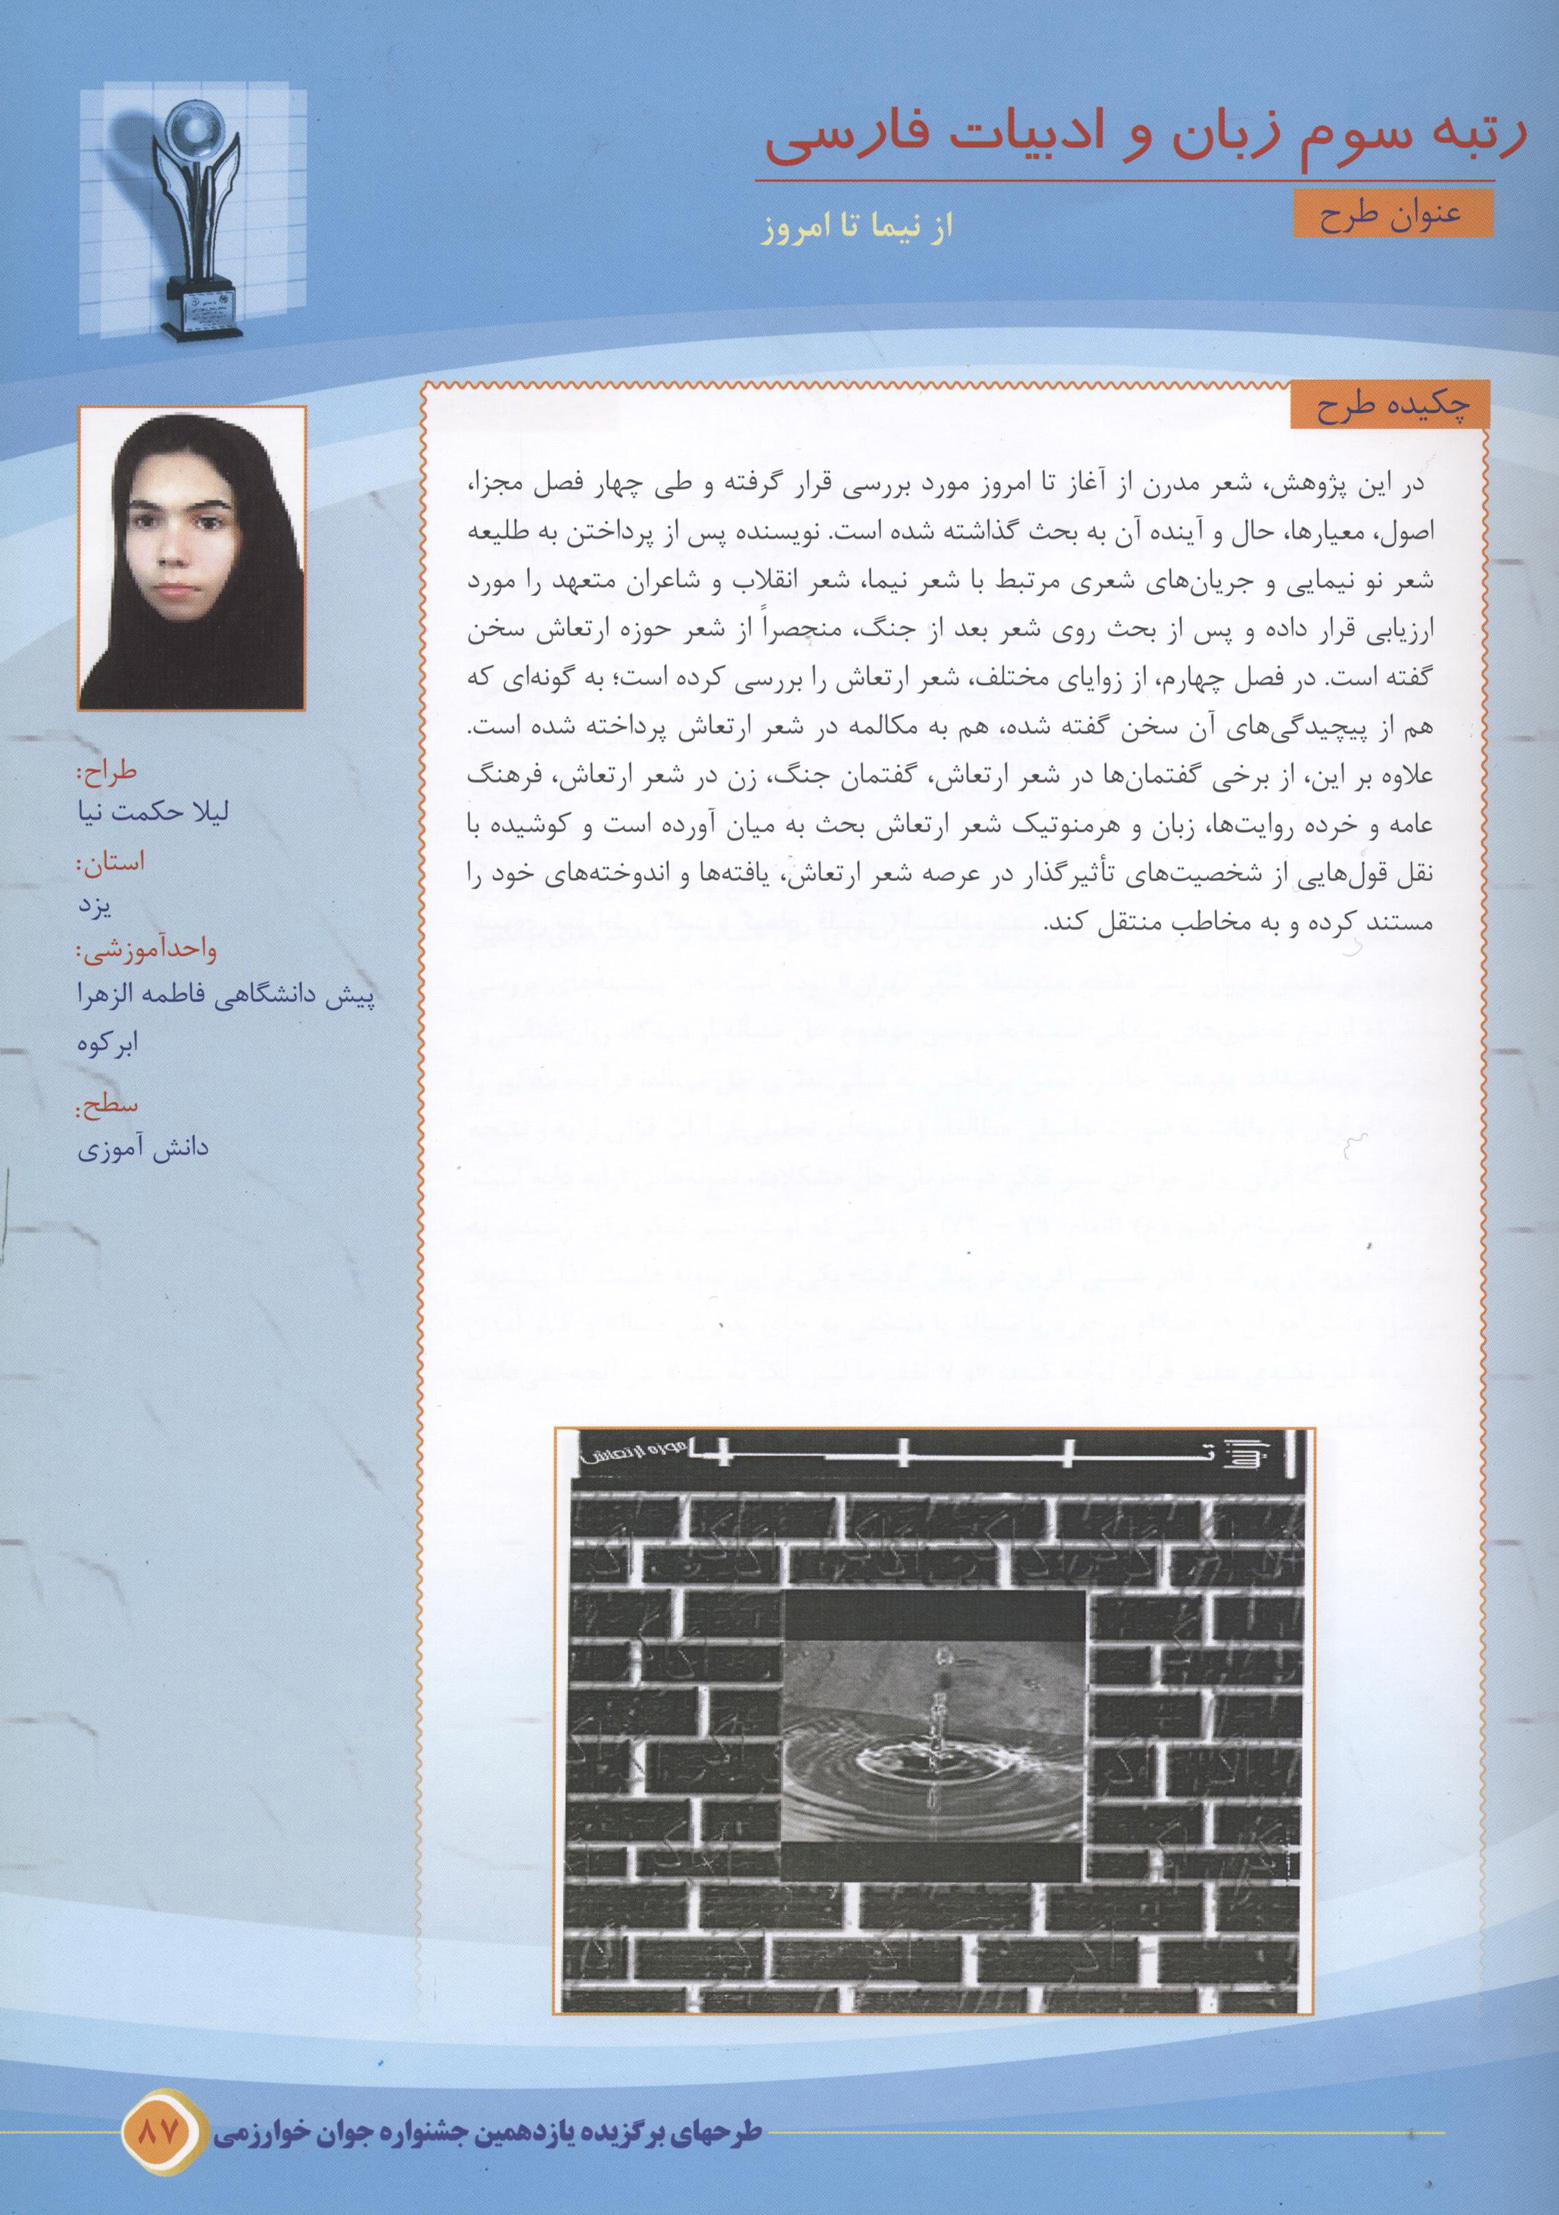 رتبه سوم زبان و ادبیات فارسی
عنوان طرح
از نیما تا امروز
چکیده طرح
در این پژوهش، شعر مدرن از آغاز تا امروز مورد بررسی قرار گرفته و طی چهار فصل مجزا،
اصول، معیارها، حال و آینده آن به بحث گذاشته شده است. نویسنده پس از پرداختن به طلیعه
شعر نو نیمایی و جریان‌های شعری مرتبط با شعر نیما، شعر انقلاب و شاعران متعهد را مورد
ارزیابی قرار داده و پس از بحث روی شعر بعد از جنگ، منحصراً از شعر حوزه ارتعاش سخن
گفته است. در فصل چهارم، از زوایای مختلف، شعر ارتعاش را بررسی کرده است؛ به گونه‌ای که
هم از پیچیدگی‌های آن سخن گفته شده، هم به مکالمه در شعر ارتعاش پرداخته شده است.
علاوه بر این، از برخی گفتمان‌ها در شعر ارتعاش، گفتمان جنگ، زن در شعر ارتعاش، فرهنگ
عامه و خرده روایت‌ها، زبان و هرمنوتیک شعر ارتعاش بحث به میان آورده است و کوشیده با
نقل قول‌هایی از شخصیت‌های تأثیرگذار در عرصه شعر ارتعاش، یافته‌ها و اندوخته‌های خود را
مستند کرده و به مخاطب منتقل کند.
طراح:
لیلا حکمت نیا
استان:
یزد
واحدآموزشی:
پیش دانشگاهی فاطمه الزهرا
ابرکوه
سطح:
دانش آموزی
طرحهای برگزیده یازدهمین جشنواره جوان خوارزمی
۸۷